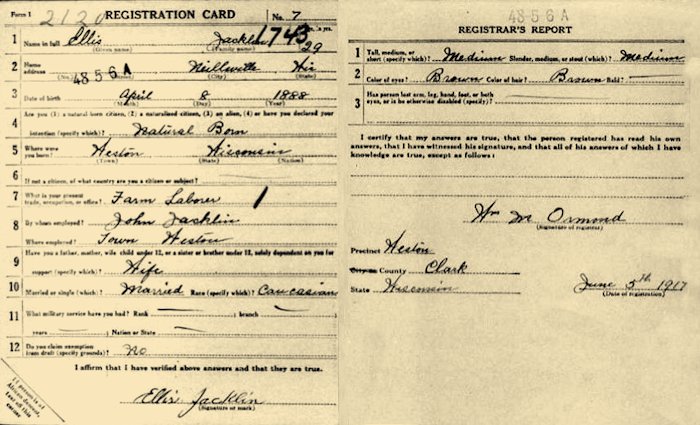 Form 1 2120 REGISTRATION CARD No. 7
1 Name in full Ellis Jacklin 1743 29
(Given name) (Family name)
2 Home address Neillsville Wis
(No.) 4856A (City) (State)
3 Date of birth April 8 1888
(Month) (Day) (Year)
4 Are you (1) a natural-born citizen, (2) a naturalized citizen, (3) an alien, (4) or have you declared your
intention (specify which)? Natural Born
5 Where were you born? Weston Wisconsin
(Town) (State) (Nation)
6 If not a citizen, of what country are you a citizen or subject?
7 What is your present trade, occupation, or office? Farm Laborer 1
8 By whom employed? John Jacklin
Where employed? Town Weston
9 Have you a father, mother, wife child under 12, or a sister or brother under 12, solely dependent on you for
support (specify which)? Wife
10 Married or single (which)? Married Race (specify which)? Caucasian
11 What military service have you had? Rank ; branch
years ; Nation or State
12 Do you claim exemption from draft (specify grounds)? No
I affirm that I have verified above answers and that they are true.
Ellis Jacklin
(Signature or mark)
If person is of
African descent,
tear off this
corner
4856A
REGISTRAR'S REPORT
1 Tall, medium, or short (specify which)? Medium Slender, medium, or stout (which)? Medium
2 Color of eyes? Brown Color of hair? Brown Bald?
3 Has person lost arm, leg, hand, foot, or both
eyes, or is he otherwise disabled (specify)?
I certify that my answers are true, that the person registered has read his own
answers, that I have witnessed his signature, and that all of his answers of which I have
knowledge are true, except as follows:
Wm M Ormond
(Signature of registrar)
Precinct Weston
County Clark
State Wisconsin June 5th 1917
(Date of registration)